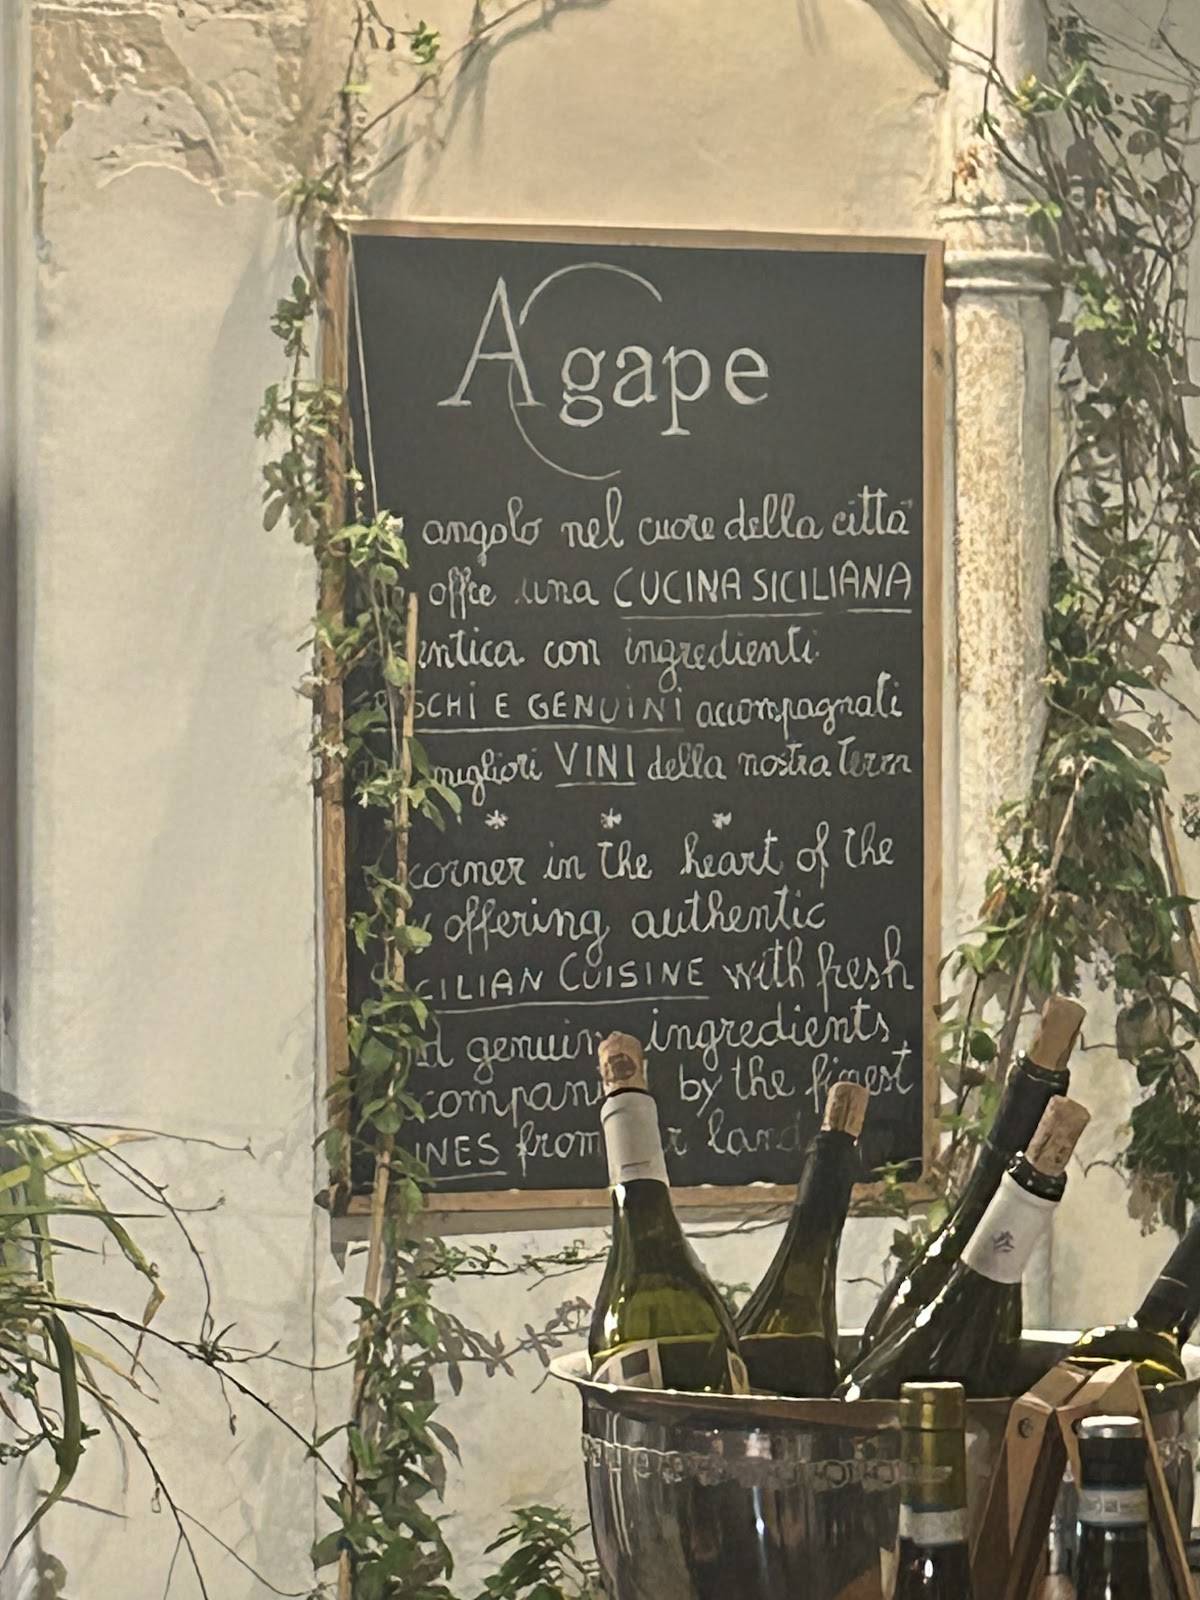 Agape
angolo nel cuore della città
offre una CUCINA SICILIANA
entica con ingredienti
SCHI E GENUINI accompagnati
migliori VINI della nostra terra
* * *
corner in the heart of the
y offering authentic
CILIAN CUISINE with fresh
d genuin ingredients
compan by the finest
INES from r land